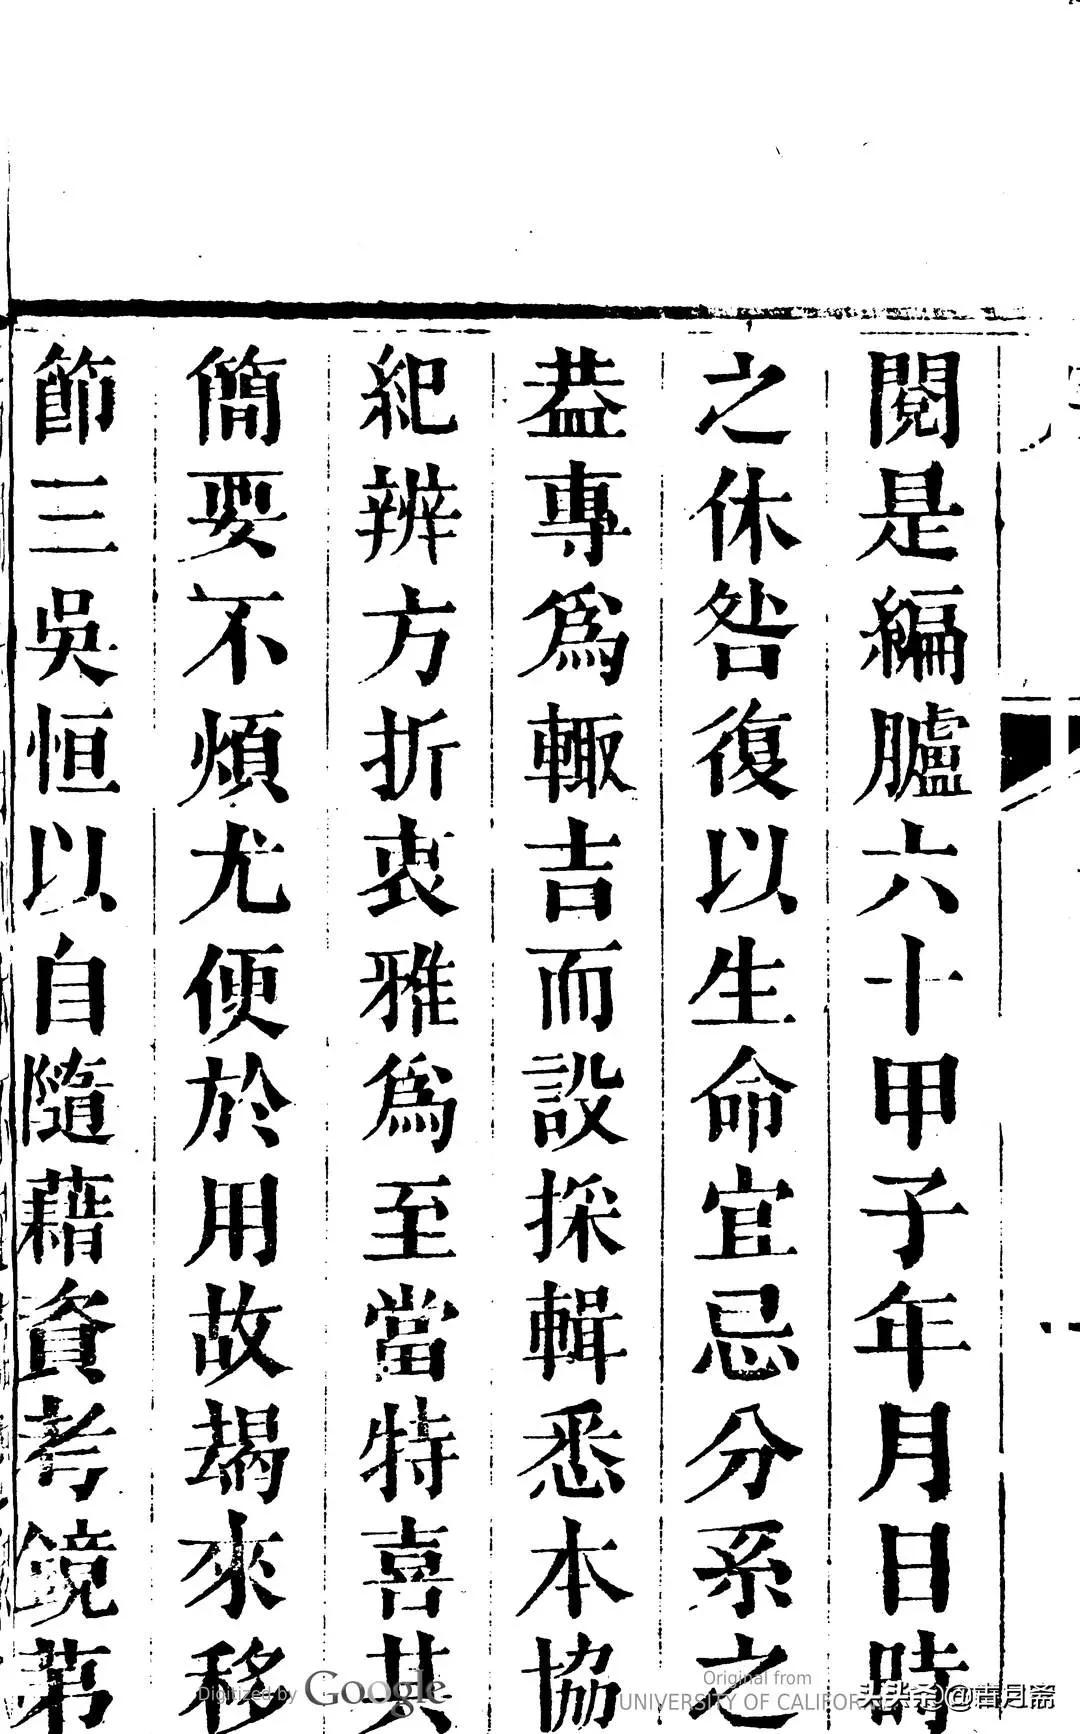 閱是編臚六十甲子年月日時
之休咎復以生命宜忌分系之
葢專爲輙吉而設採輯悉本協
紀辨方折衷雅爲至當特喜其
簡要不煩尤便於用故朅來移
節三吳恒以自隨藉資考鏡第
Digitized by Google
Original from
UNIVERSITY OF CALIFOR
头条@青月斋